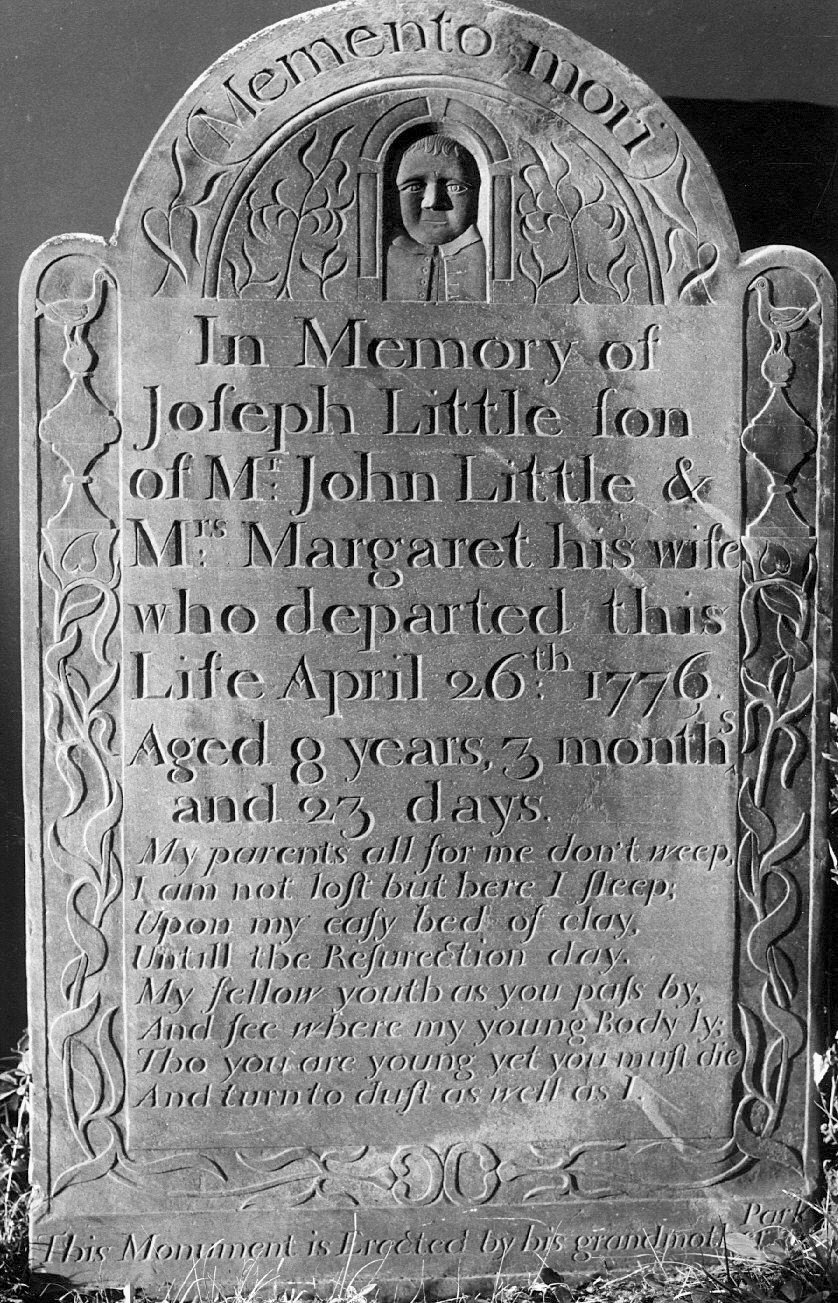 Memento mori
In Memory of
Joſeph Little ſon
of Mr. John Little &
Mrs. Margaret his wife
who departed this
Life April 26th. 1776.
Aged 8 years, 3 months,
and 23 days.
My parents all for me don't weep,
I am not loſt but here I ſleep;
Upon my eaſy bed of clay,
Untill the Reſurection day.
My fellow youth as you paſs by,
And ſee where my young Body ly;
Tho you are young yet you muſt die
And turn to duſt as well as I.
This Monument is Erected by his grandmother Park